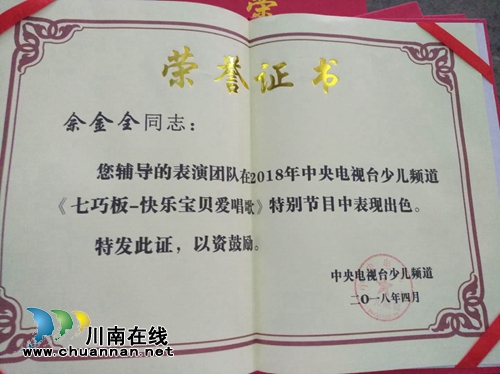 荣誉证书
余金全同志：
您辅导的表演团队在2018年中央电视台少儿频道
《七巧板-快乐宝贝爱唱歌》特别节目中表现出色。
特发此证，以资鼓励。
中央电视台少儿频道
二〇一八年四月
川南在线
www.chuannan.net